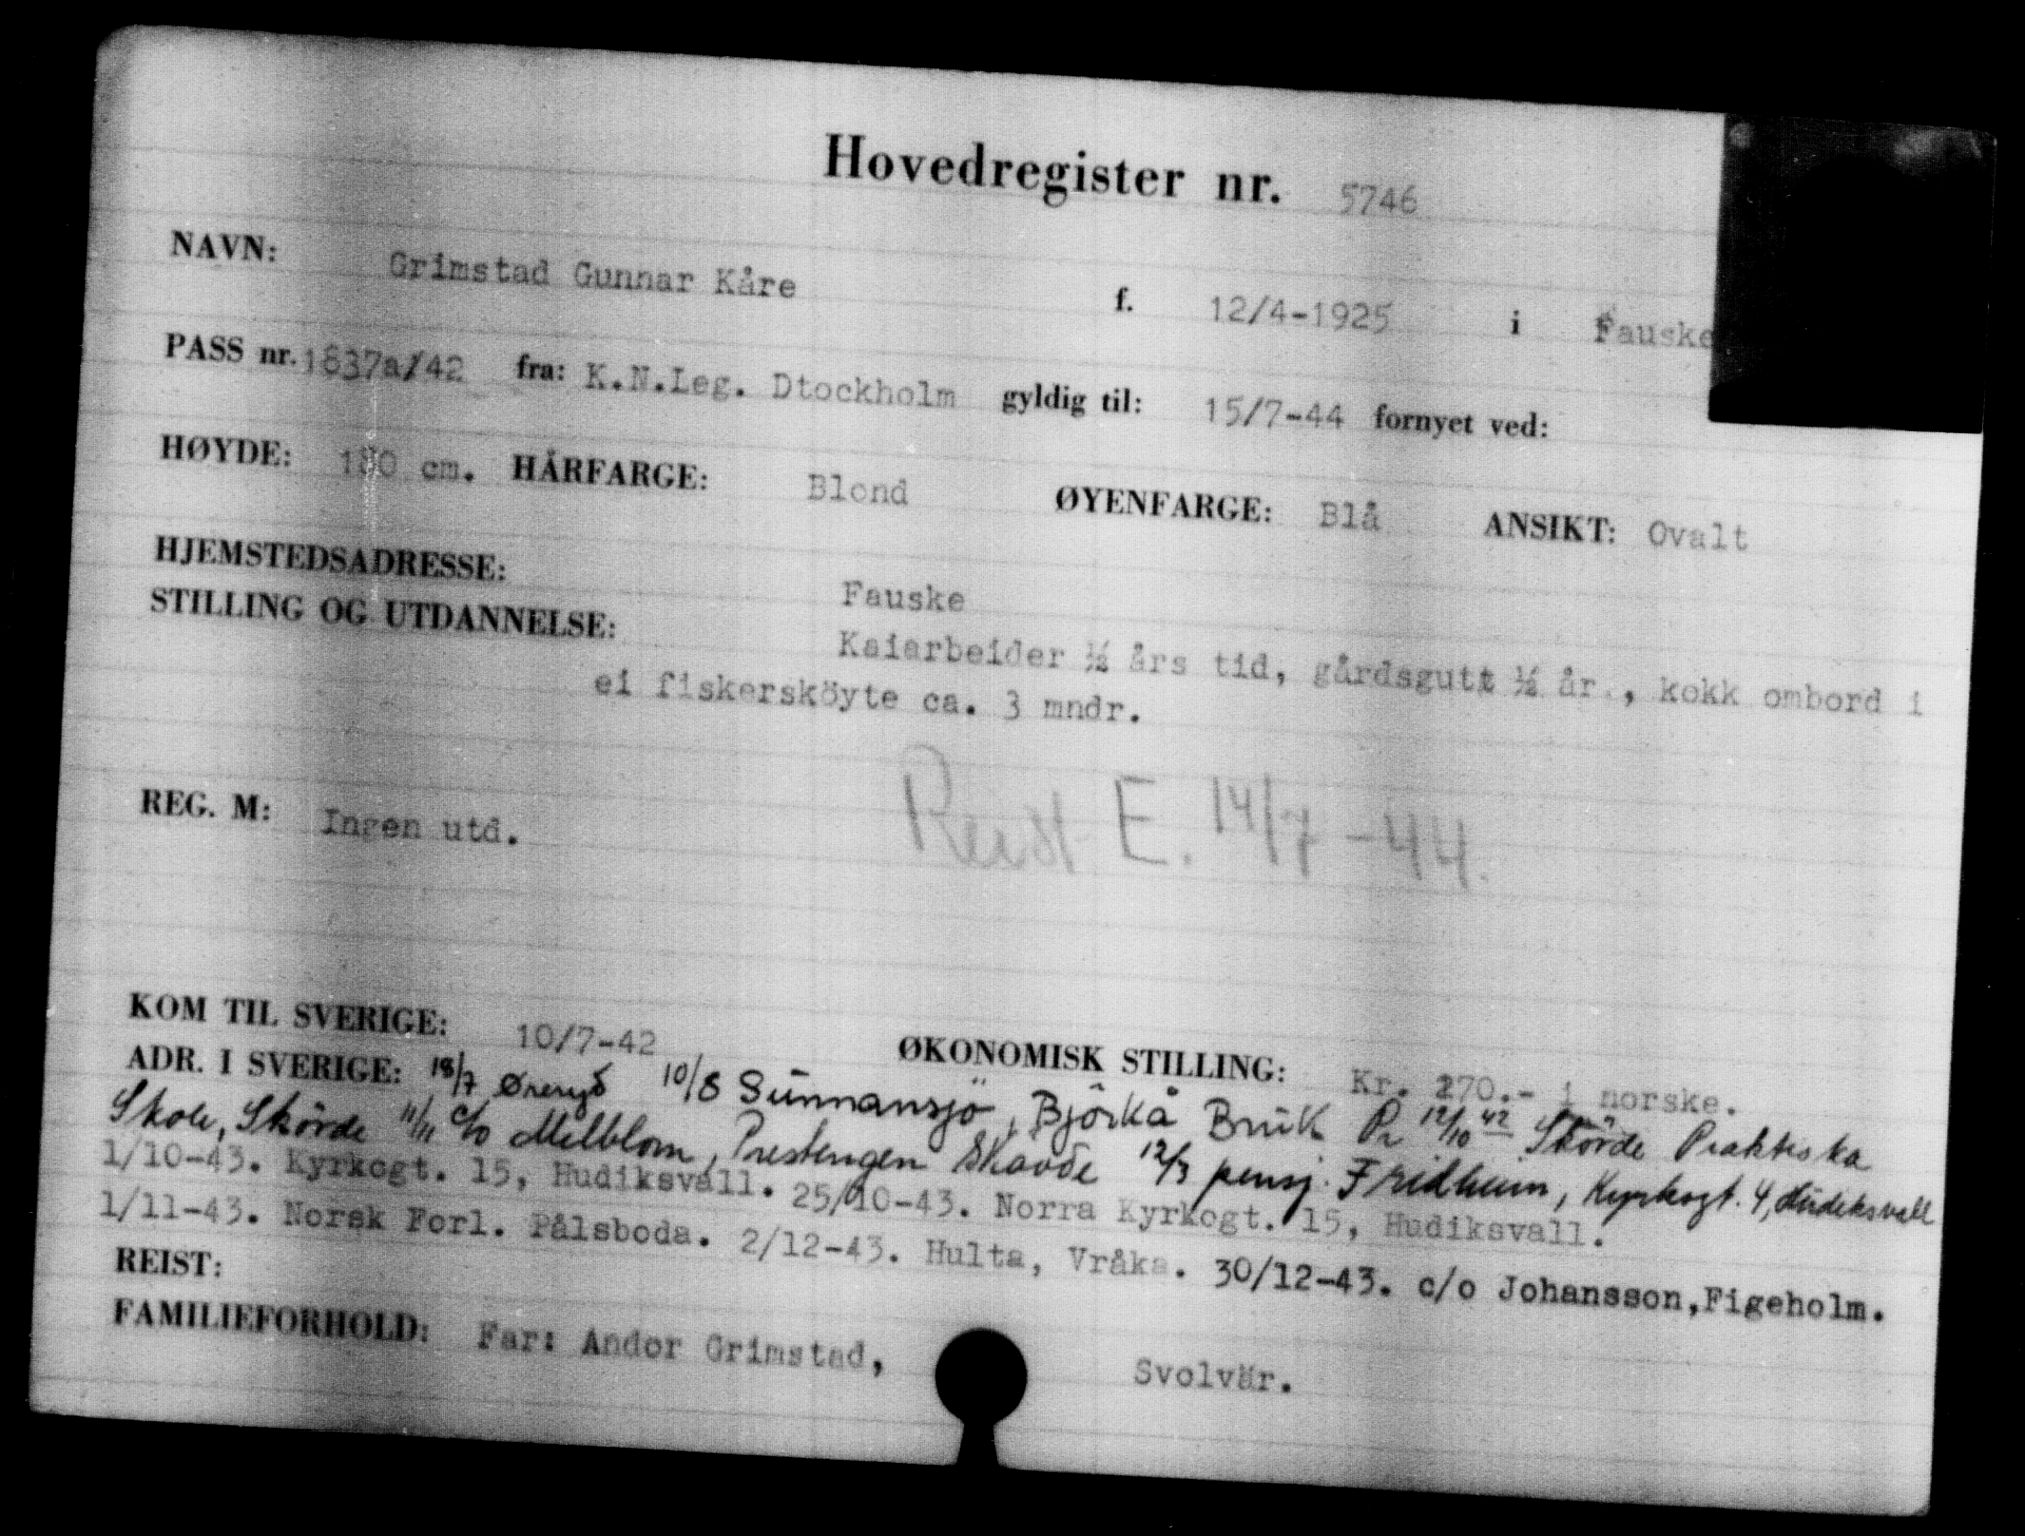 Hovedregister nr. 5746
NAVN: Grimstad Gunnar Kåre f. 12/4-1925 i Fauske
PASS nr. 1837a/42 fra: K.N.Leg. Dtockholm gyldig til: 15/7-44 fornyet ved:
HØYDE: 180 cm. HÅRFARGE: Blond ØYENFARGE: Blå ANSIKT: Ovalt
HJEMSTEDSADRESSE: Fauske
STILLING OG UTDANNELSE: Kaiarbeider ½ års tid, gårdsgutt ½ år., kokk ombord i
ei fiskersköyte ca. 3 mndr.
Reist E. 14/7-44.
REG. M: Ingen utd.
KOM TIL SVERIGE: 10/7-42 ØKONOMISK STILLING: Kr. 270.- i norske.
ADR. I SVERIGE: 18/7 Øreryd 10/8 Sunnansjö, Björkå Bruk 12/10 42 Skövde Praktiska
Skole, Skövde 11/11 c/o Mellblom, Prestengen Skövde 12/3 pensj. Fridheim, Kyrkogt. 4, Hudiksvall
1/10-43. Kyrkogt. 15, Hudiksvall. 25/10-43. Norra Kyrkogt. 15, Hudiksvall.
1/11-43. Norsk Forl. Pålsboda. 2/12-43. Hulta, Vråka. 30/12-43. c/o Johansson, Figeholm.
REIST:
FAMILIEFORHOLD: Far: Andor Grimstad, Svolvär.